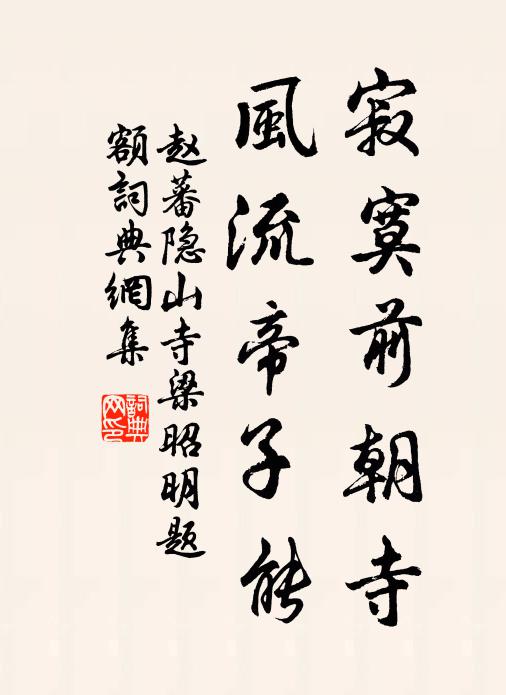 寂寞前朝寺
風流帝子能
赵蕃隐山寺梁昭明题
额詞典網集
詞典网印